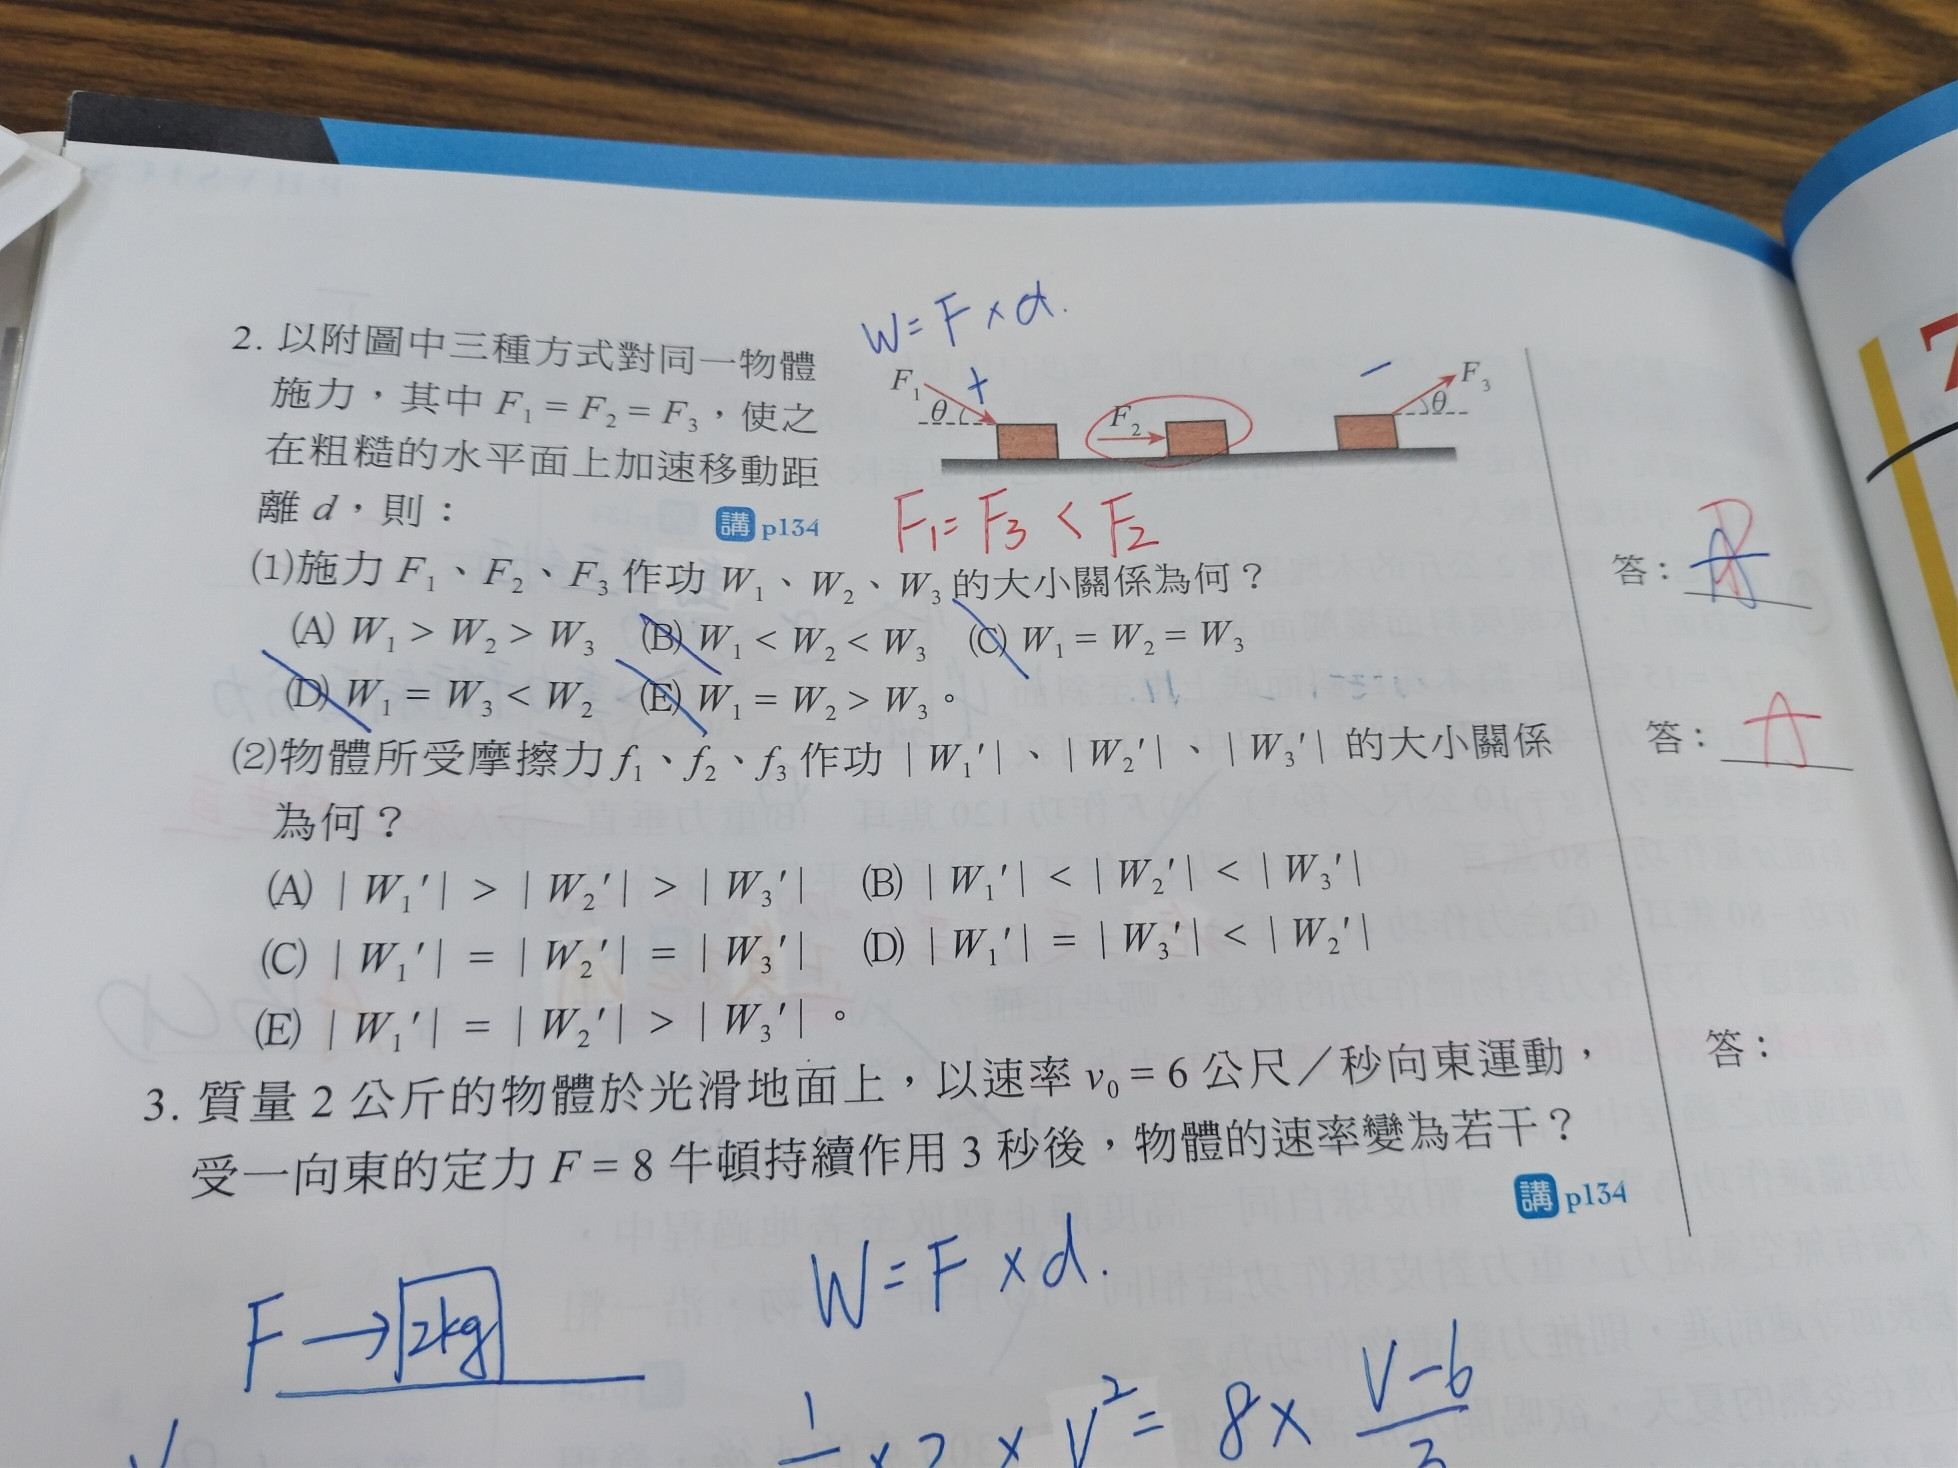 W = F × d.
2. 以附圖中三種方式對同一物體
施力，其中 F₁ = F₂ = F₃，使之
在粗糙的水平面上加速移動距
離 d，則： 講 p134
F₁ θ +
F₂
− F₃ θ
F₁ = F₃ < F₂
⑴施力 F₁、F₂、F₃ 作功 W₁、W₂、W₃ 的大小關係為何？ 答：
(A) W₁ > W₂ > W₃ (B) W₁ < W₂ < W₃ (C) W₁ = W₂ = W₃
(D) W₁ = W₃ < W₂ (E) W₁ = W₂ > W₃。
⑵物體所受摩擦力 f₁、f₂、f₃ 作功 | W₁′|、| W₂′|、| W₃′| 的大小關係 答： A
為何？
(A) | W₁′| > | W₂′| > | W₃′| (B) | W₁′| < | W₂′| < | W₃′|
(C) | W₁′| = | W₂′| = | W₃′| (D) | W₁′| = | W₃′| < | W₂′|
(E) | W₁′| = | W₂′| > | W₃′|。
3. 質量 2 公斤的物體於光滑地面上，以速率 v₀ = 6 公尺／秒向東運動， 答：
受一向東的定力 F = 8 牛頓持續作用 3 秒後，物體的速率變為若干？
講 p134
F → 2kg
W = F × d.
1 × 2 × V² = 8 × V − 6
7